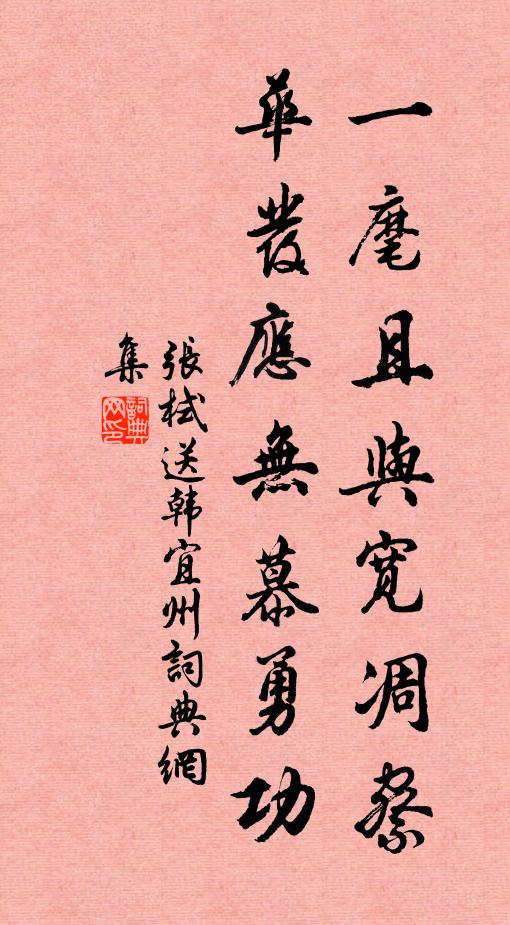 一麾且與寬凋瘵
華發應無慕勇功
張栻送韩宜州詞典網
集
詞典
网印